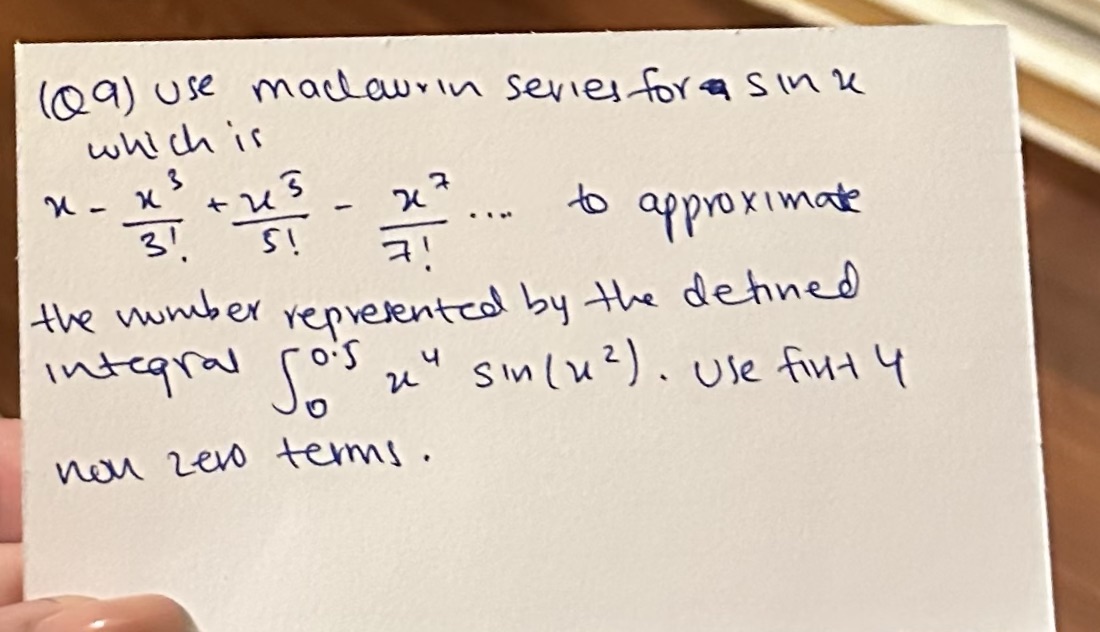 (Q9) Use maclaurin series for sin x
which is
x - x³/3! + x⁵/5! - x⁷/7! .... to approximate
the number represented by the defined
integral ∫₀^0.5 x⁴ sin(x²). Use first 4
non zero terms.